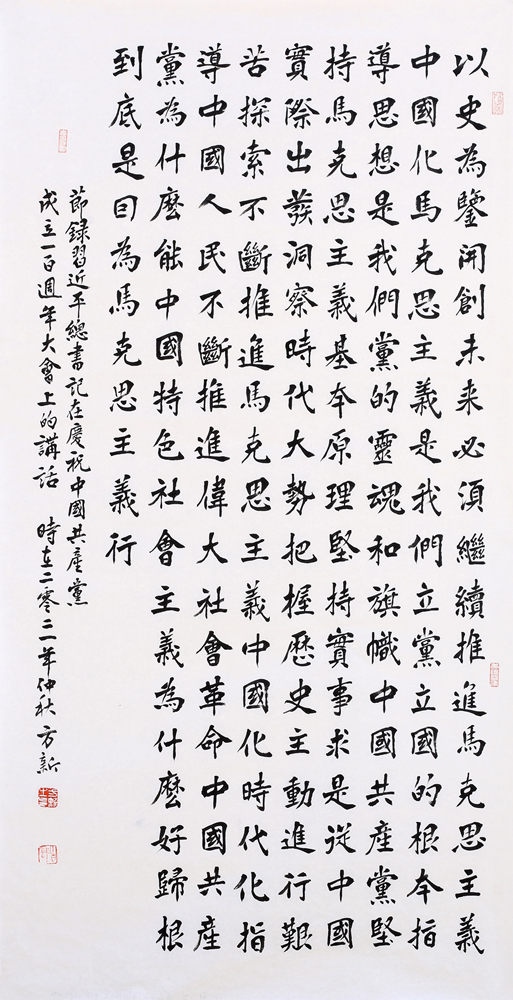 以史為鑒開創未来必須繼續推進馬克思主義
中國化馬克思主義是我們立黨立國的根本指
導思想是我們黨的靈魂和旗幟中國共産黨堅
持馬克思主義基本原理堅持實事求是從中國
實際出發洞察時代大勢把握歷史主動進行艱
苦探索不斷推進馬克思主義中國化時代化指
導中國人民不斷推進偉大社會革命中國共産
黨為什麽能中國特色社會主義為什麽好歸根
到底是因為馬克思主義行
節録習近平總書記在慶祝中國共産黨
成立一百週年大會上的講話 時在二零二一年仲秋 方新